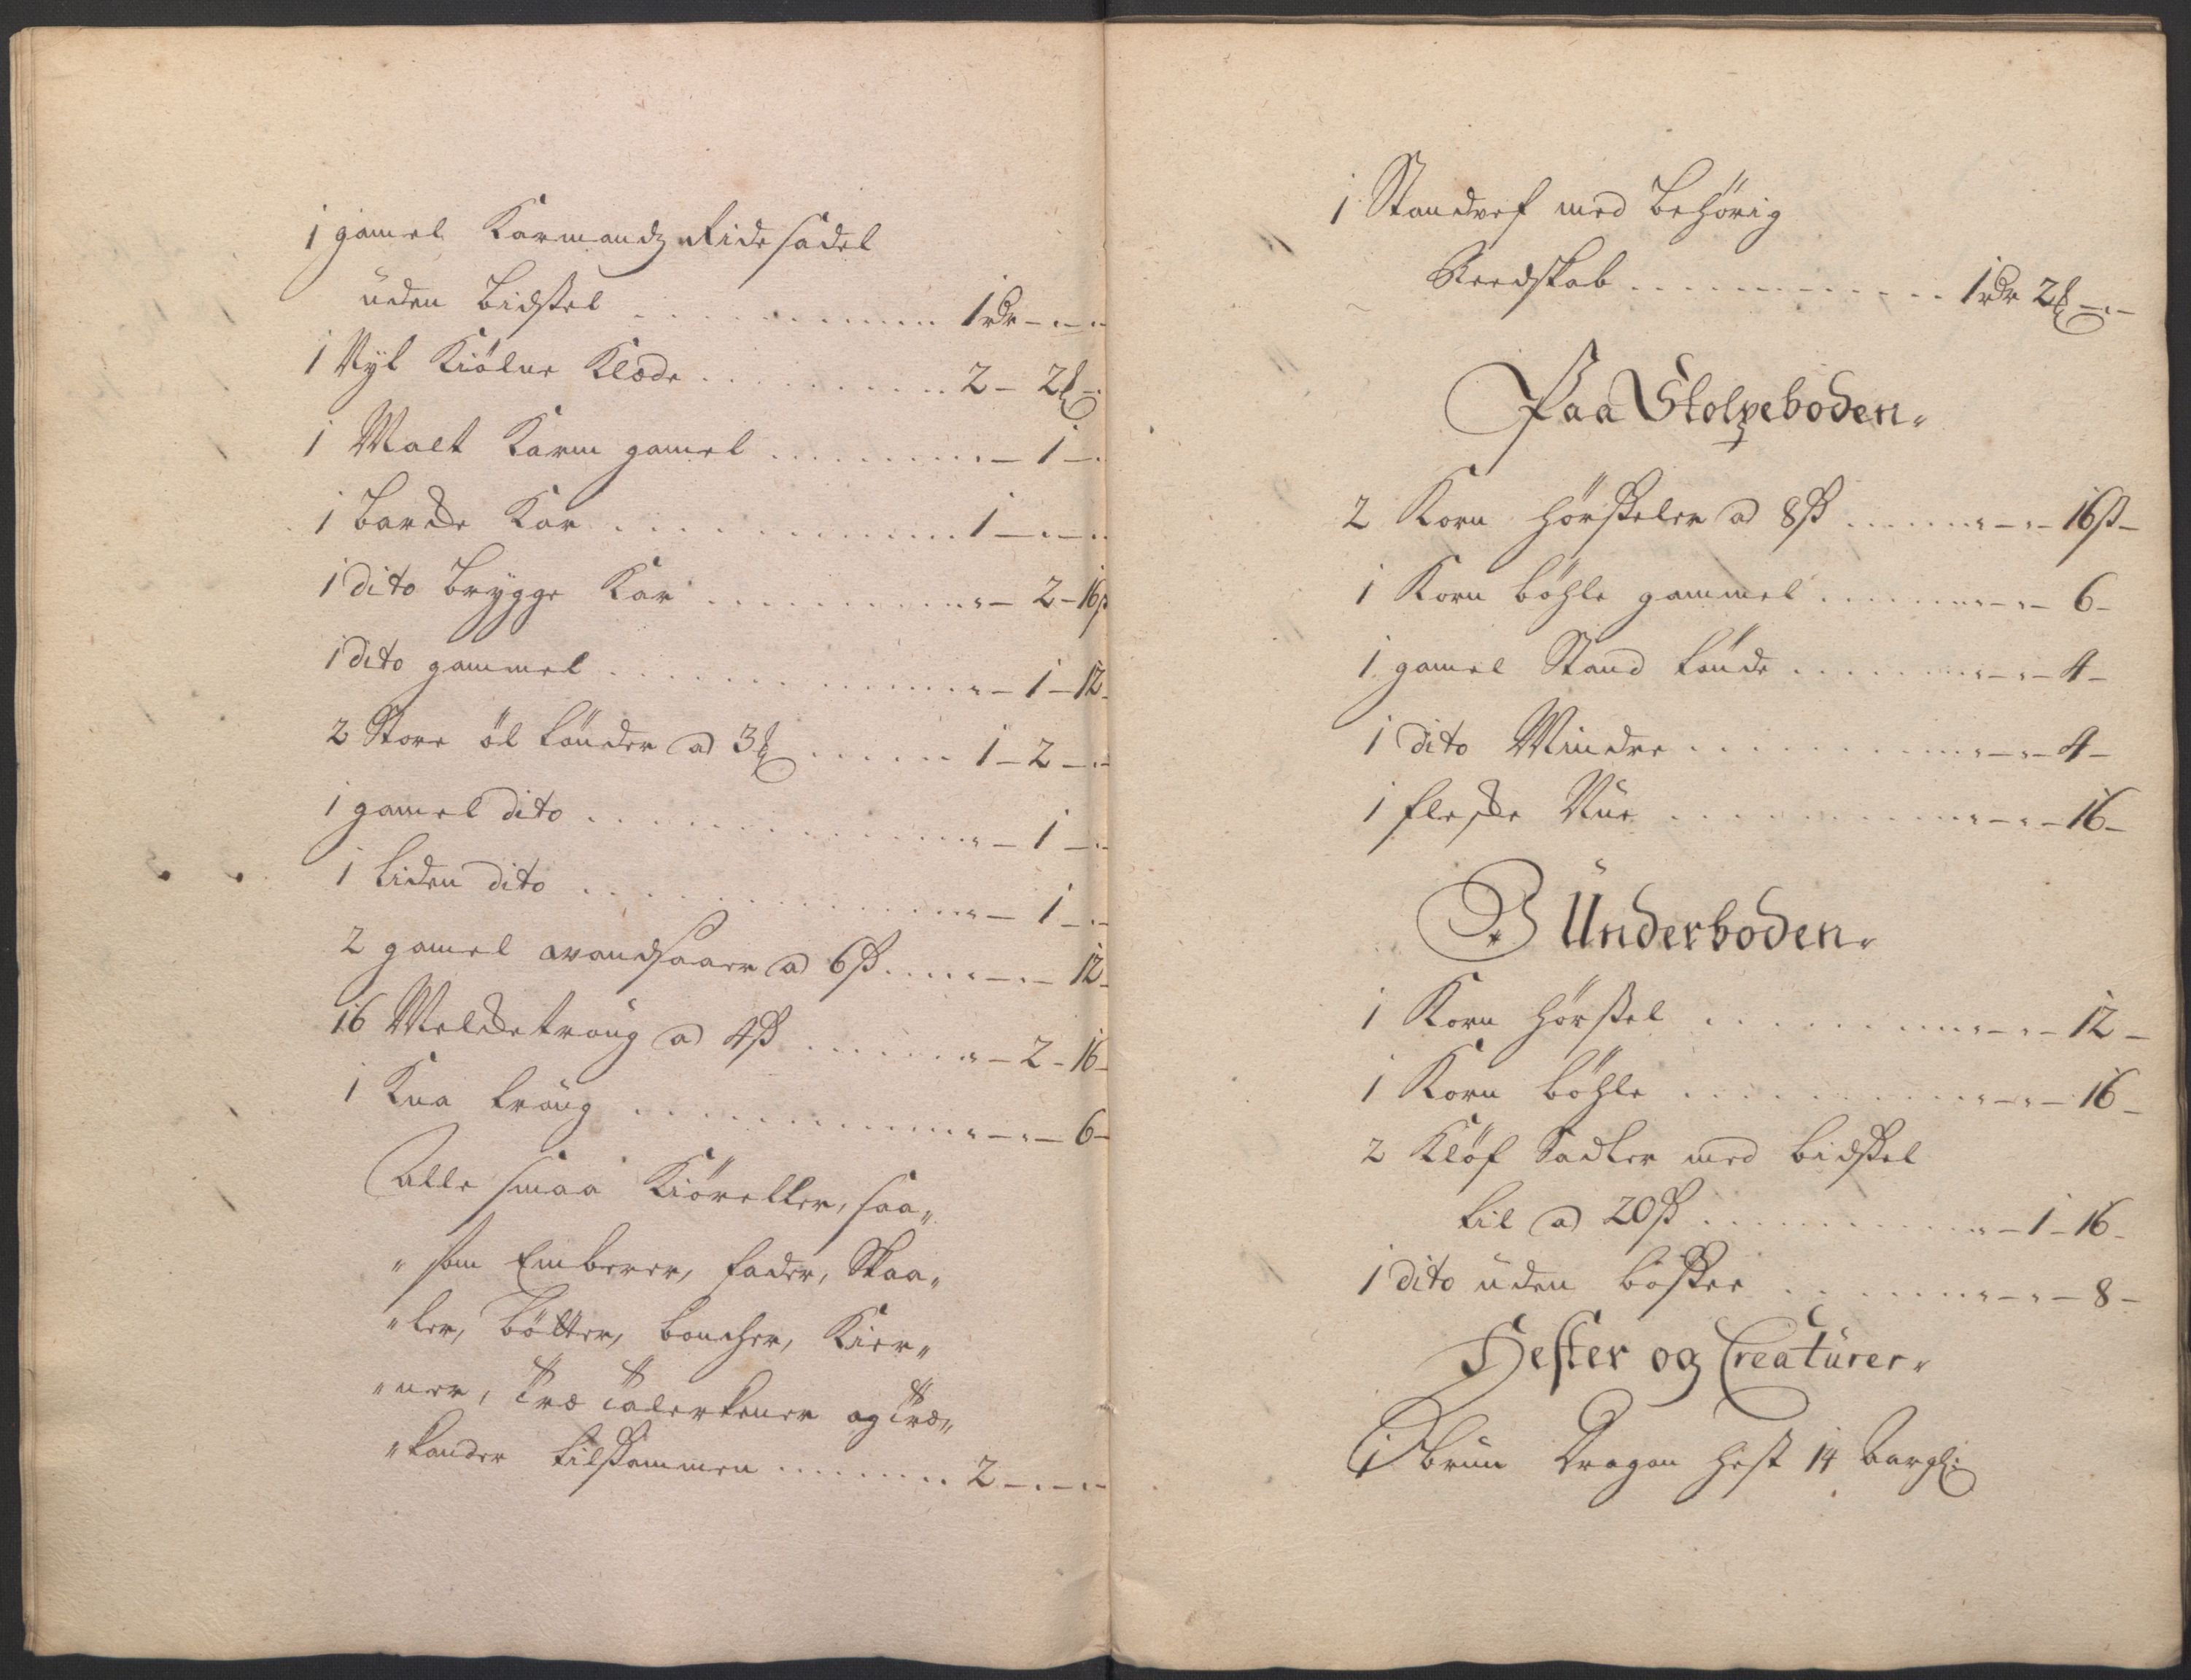 1 gamel Karmandz Ride sadel
üden Bidssel . . . . . . . . . . 1 rdr - " - "
1 Nyt Kiölne Klæde . . . . . . . . . 2 - 2 ℔ -
1 Malt Karm gamel . . . . . . . . . . - 1 - "
1 Barcke Kar . . . . . . . . . . . . 1 - " - "
1 dito Brygge Kar . . . . . . . . . " - 2 - 16 ß
1 dito gammel . . . . . . . . . . . . " - 1 - 12 -
2 Store öl tönder a 3 ℔ . . . . . . 1 - 2 - " -
1 gamel dito . . . . . . . . . . . . . " - 1 - " -
1 liden dito . . . . . . . . . . . . . " - 1 - " -
2 gamel vandsaaer a 6 ß . . . . . " - " - 12 -
16 Melcketroug a 4 ß . . . . . . . " - 2 - 16 -
1 Kna troug . . . . . . . . . . . . . " - " - 6 -
Alle smaa Kiöreller, saa„
„som Emberer, fader, Skaa„
„ler, Bötter, Boucher, Kier„
„ner, Træ Talerkener og Træ„
„kander tilsammen . . . . . . . . 2 - " - "
1 Standvef med Behörig
Reedskab . . . . . . . . . . . . 1 rdr 2 ℔ - " -
Paa Stolpeboden„
2 Korn Hörskeler a 8 ß . . . . . . . " - " - 16 ß -
1 Korn böhle gammel . . . . . . . " - " - 6 -
1 gamel Stand tönde . . . . . . . " - " - 4 -
1 dito Mindre . . . . . . . . . . " - " - 4 -
1 fleske Nue . . . . . . . . . . " - " - 16 -
I Ünderboden„
1 Korn Hörskel . . . . . . . . . " - " - 12 -
1 Korn böhle . . . . . . . . . . " - " - 16 -
2 Klöf Sadler med bidssel
til a 20 ß . . . . . . . . . . . " - 1 - 16 -
1 dito üden . . . . . . . " - " - 8 -
Hester og Creatürer„
1 brun Dragon Hest 14 Aargl: